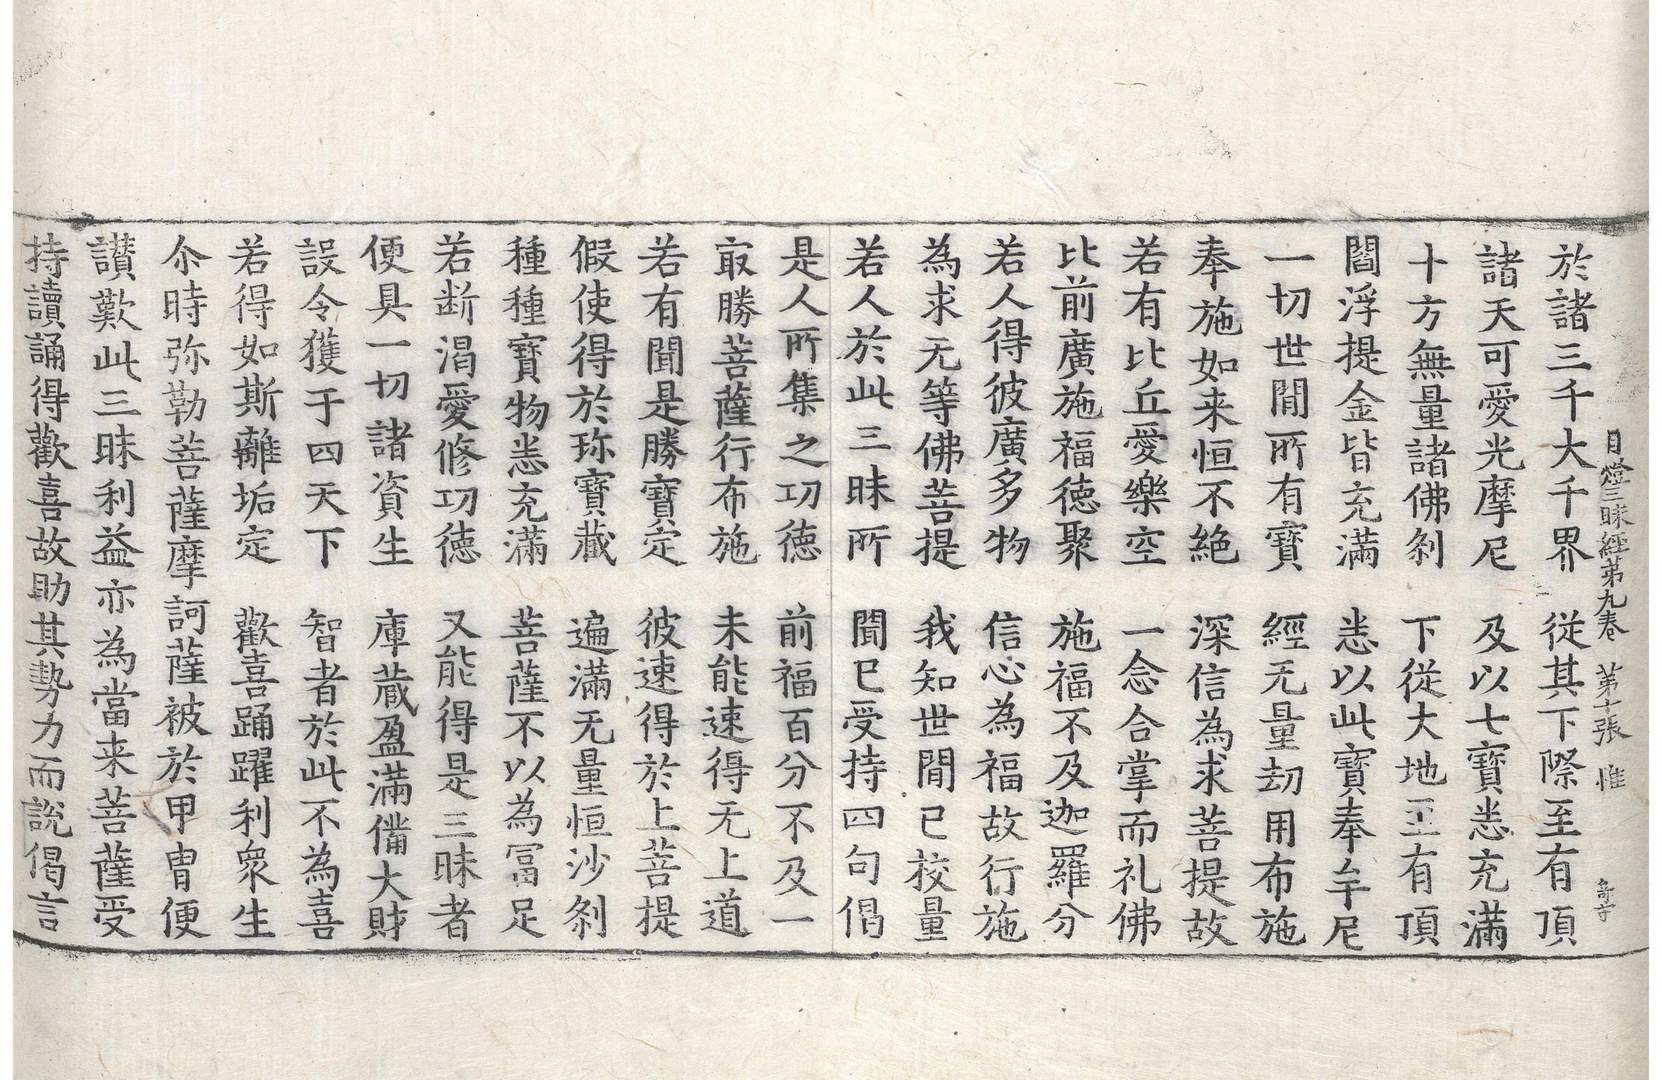 月燈三昧經第九卷　第十張　惟
於諸三千大千界　從其下際至有頂
諸天可愛光摩尼　及以七寶悉充滿
十方無量諸佛刹　下從大地至有頂
閻浮提金皆充滿　悉以此寶奉牟尼
一切世間所有寶　經无量劫用布施
奉施如来恒不絶　深信為求菩提故
若有比丘愛樂空　一念合掌而礼佛
比前廣施福德聚　施福不及迦羅分
若人得彼廣多物　信心為福故行施
為求无等佛菩提　我知世間已校量
若人於此三昧所　聞已受持四句偈
是人所集之功德　前福百分不及一
㝡勝菩薩行布施　未能速得无上道
若有聞是勝寶定　彼速得於上菩提
假使得於珎寶藏　遍滿无量恒沙刹
種種寶物悉充滿　菩薩不以為冨足
若断渴愛修功德　又能得是三昧者
便具一切諸資生　庫藏盈滿俻大財
設令獲于四天下　智者於此不為喜
若得如斯離垢定　歡喜踊躍利衆生
尒時弥勒菩薩摩訶薩被於甲冑便
讃歎此三昧利益亦為當来菩薩受
持讀誦得歡喜故助其勢力而說偈言